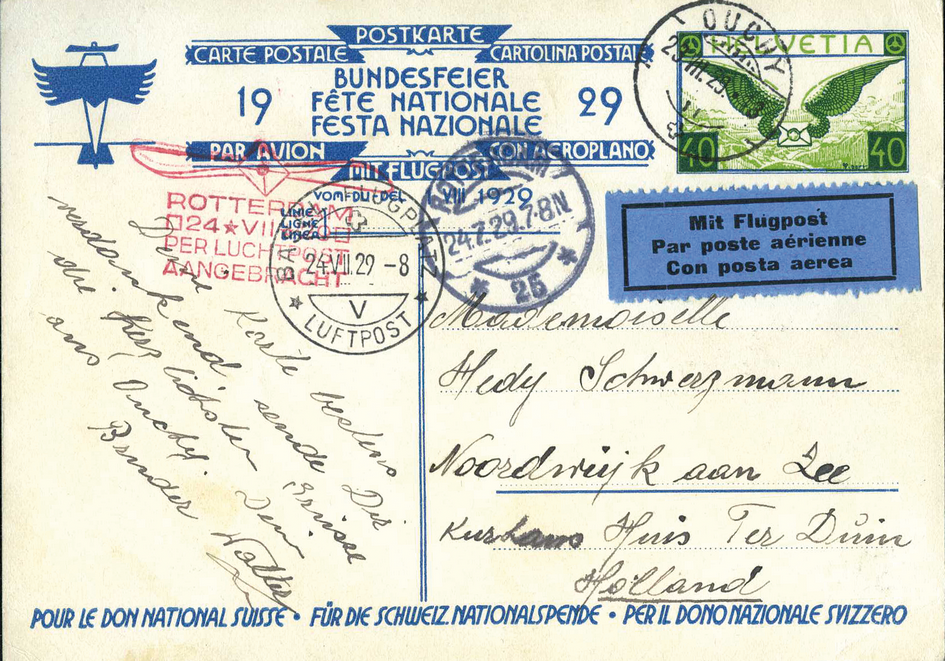 POSTKARTE
CARTE POSTALE CARTOLINA POSTALE
BUNDESFEIER
19 FÊTE NATIONALE 29
FESTA NAZIONALE
PAR AVION CON AEROPLANO
MIT FLUGPOST
VOM-DU-DEL VIII 1929
LINIE
LIGNE
LINEA
OUCHY
HELVETIA
40 40
ROTTERDAM
24 ★ VII
PER LUCHTPOST
AANGEBRACHT
FLUGPLATZ
24.VII.29 -8
V
★ LUFTPOST ★
24.7.29.7-8N
* 25 *
Mit Flugpost
Par poste aérienne
Con posta aerea
Mademoiselle
Hedy Schwerzmann
Noordwijk aan Zee
Kurhaus Huis Ter Duin
Holland
Deine Karte bestens
verdankend sende Dir
die herzlichsten Grüsse
aus Ouchy Dein
Bruder Walter
POUR LE DON NATIONAL SUISSE • FÜR DIE SCHWEIZ. NATIONALSPENDE • PER IL DONO NAZIONALE SVIZZERO